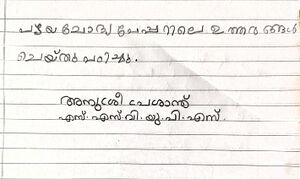 പഴയ ചോദ്യ പേപ്പറിലെ ഉത്തരങ്ങൾ
ചെയ്തു പഠിച്ചു.
അനുശ്രീ പ്രശാന്ത്
എസ്. എസ്. വി. യു. പി. എസ്.